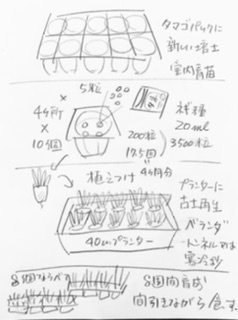 タマゴパックに
新しい培土
室内育苗
5粒
×
4ヶ所
×
10個
種
20ml
200粒
3500粒
17.5回
4ヶ月分
植えつけ
プランターに
古土再生
ベランダ
トンネル
寒冷紗
40cmプランター
8個ならべて
8週間育苗
間引きながら食す。